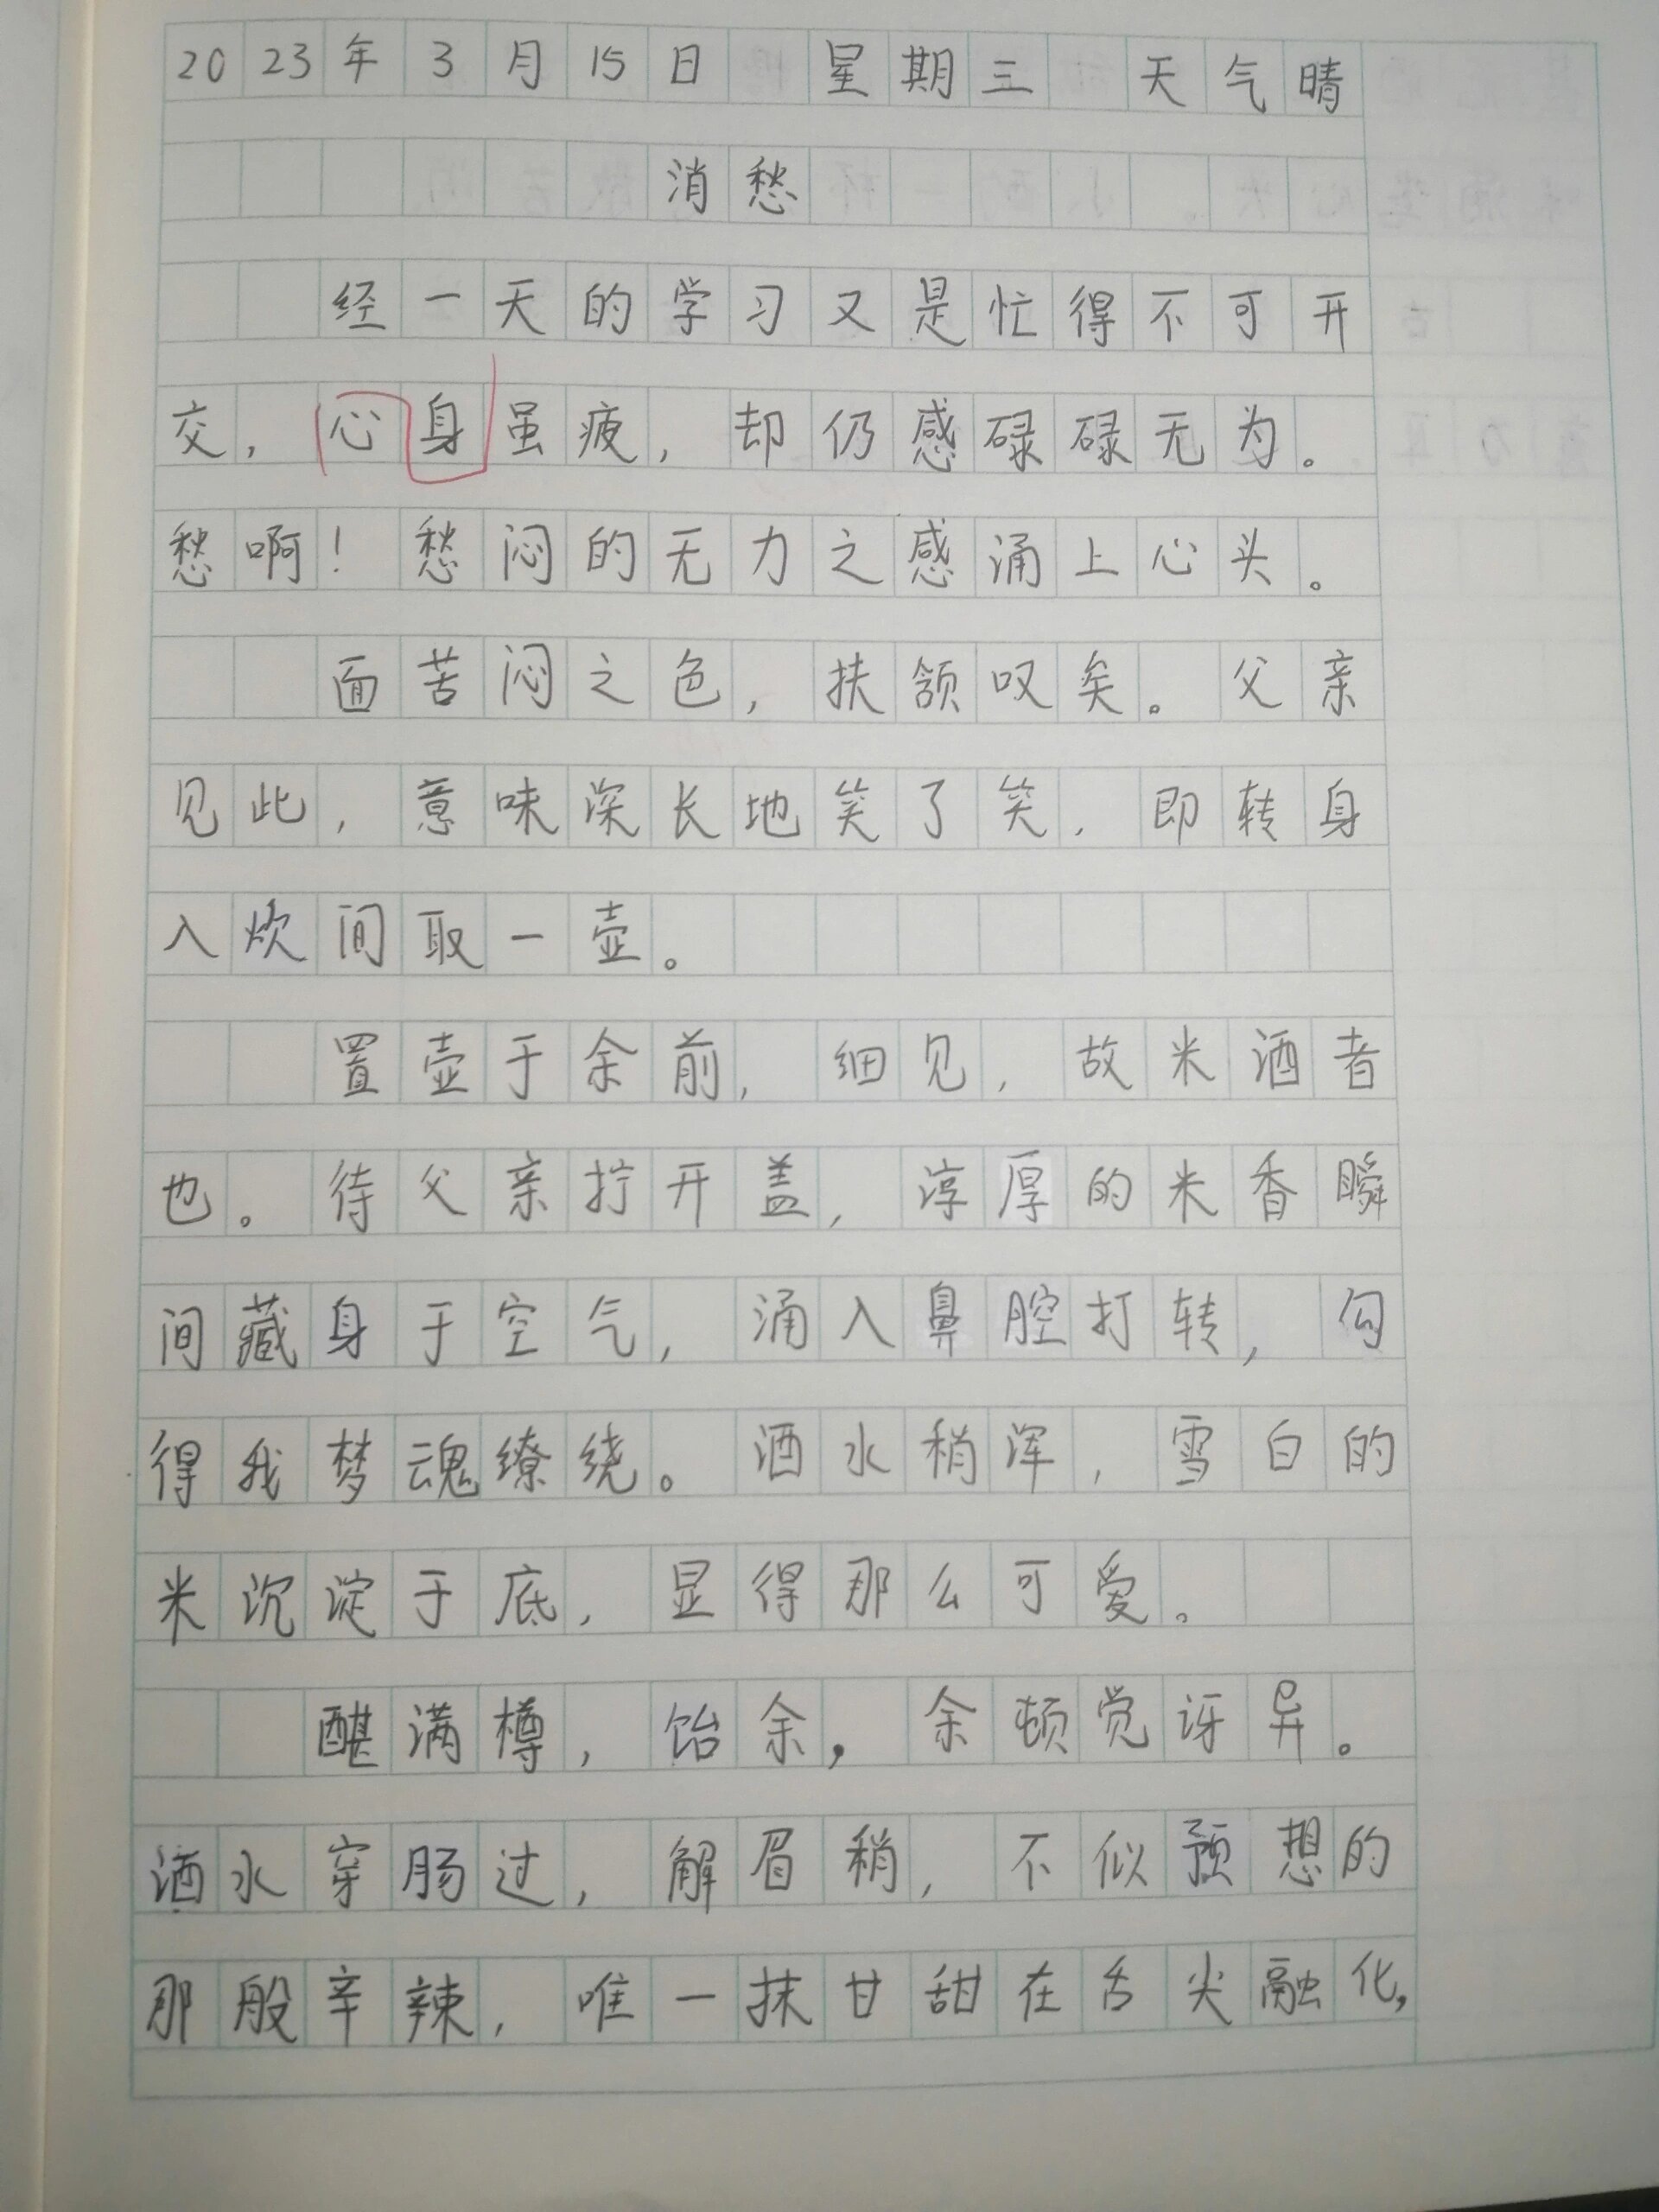 2023年3月15日 星期三 天气晴
消愁
经一天的学习又是忙得不可开
交，心身虽疲，却仍感碌碌无为。
愁啊！愁闷的无力之感涌上心头。
面苦闷之色，扶颔叹矣。父亲
见此，意味深长地笑了笑，即转身
入炊间取一壶。
置壶于余前，细见，故米酒者
也。待父亲拧开盖，淳厚的米香瞬
间藏身于空气，涌入鼻腔打转，勾
得我梦魂缭绕。酒水稍浑，雪白的
米沉淀于底，显得那么可爱。
醖满樽，饴余，余顿觉讶异。
酒水穿肠过，解眉稍，不似预想的
那般辛辣，唯一抹甘甜在舌尖融化，